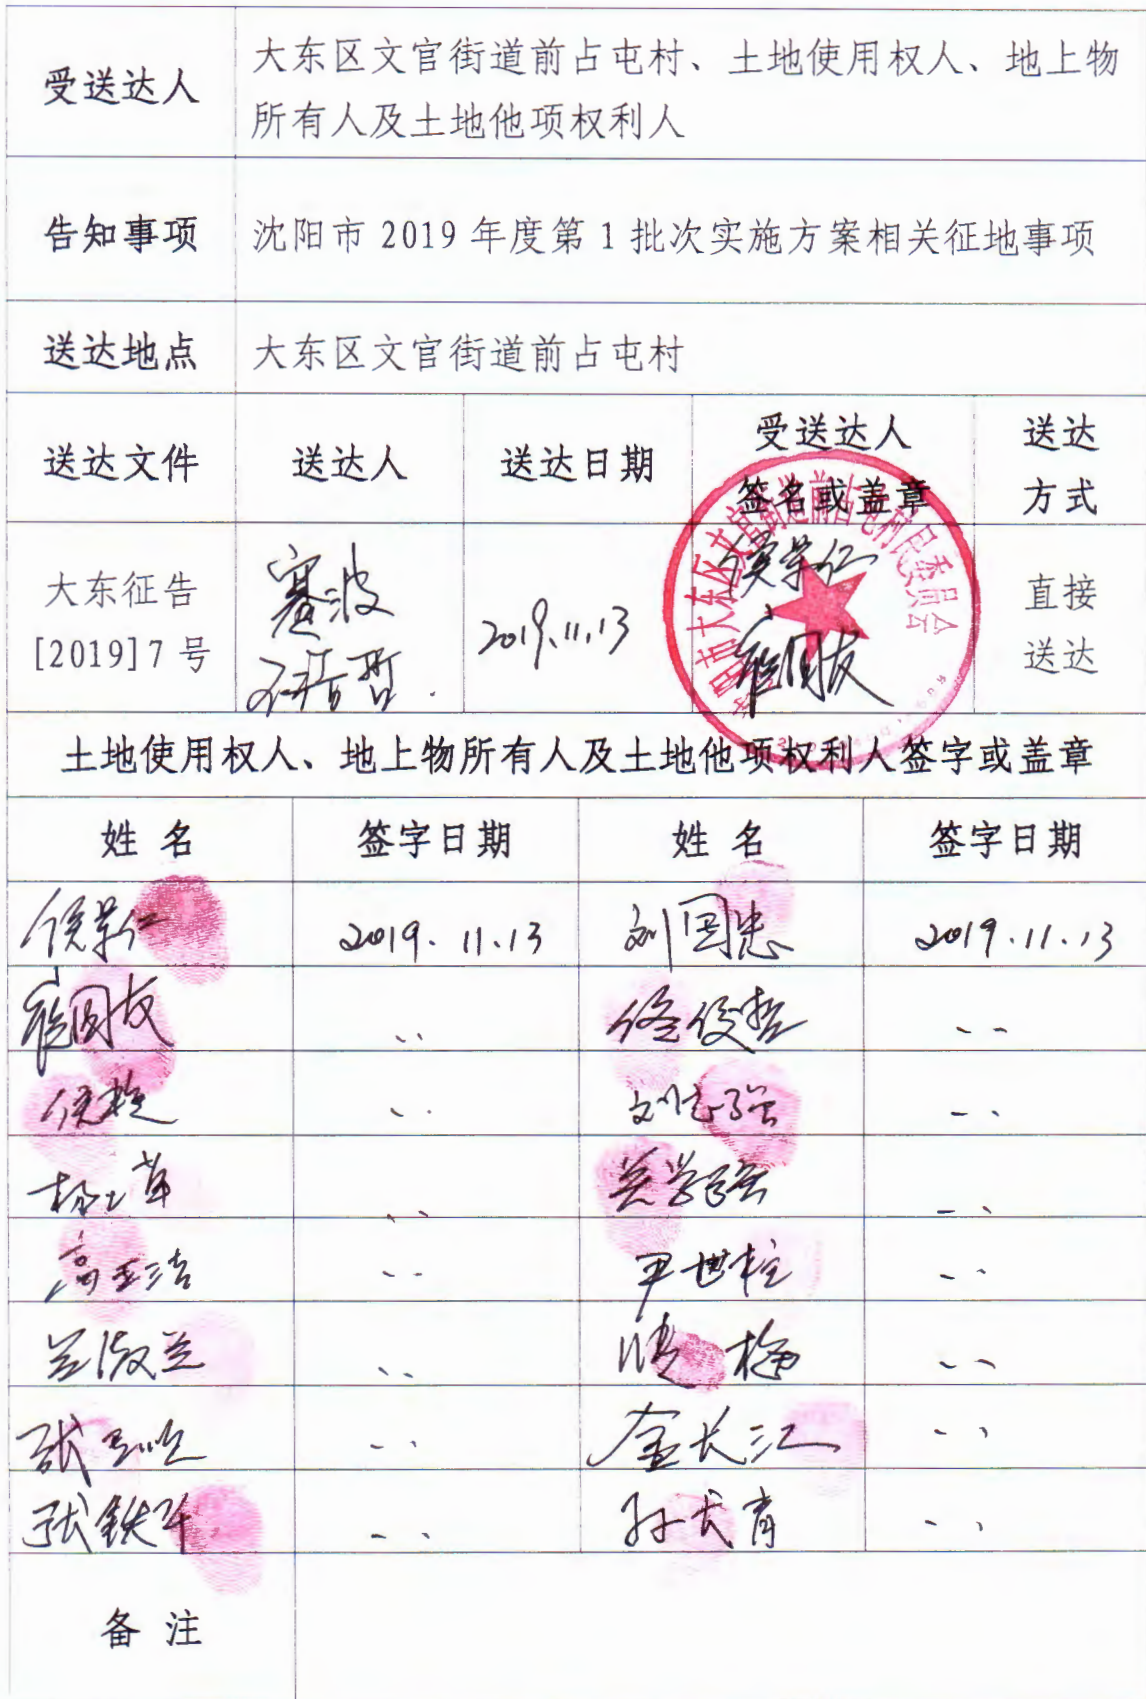 受送达人
大东区文官街道前占屯村、土地使用权人、地上物
所有人及土地他项权利人
告知事项
沈阳市 2019 年度第 1 批次实施方案相关征地事项
送达地点
大东区文官街道前占屯村
送达文件
送达人
送达日期
受送达人
签名或盖章
送达
方式
大东征告
[2019]7 号
2019.11.13
侯景仁
崔国友
直接
送达
土地使用权人、地上物所有人及土地他项权利人签字或盖章
姓 名
签字日期
姓 名
签字日期
侯景仁
2019.11.13
刘国忠
2019.11.13
崔国友
佟俊哲
刘志强
关学强
高玉洁
尹世柱
兰淑兰
金长江
张铁牛
备 注